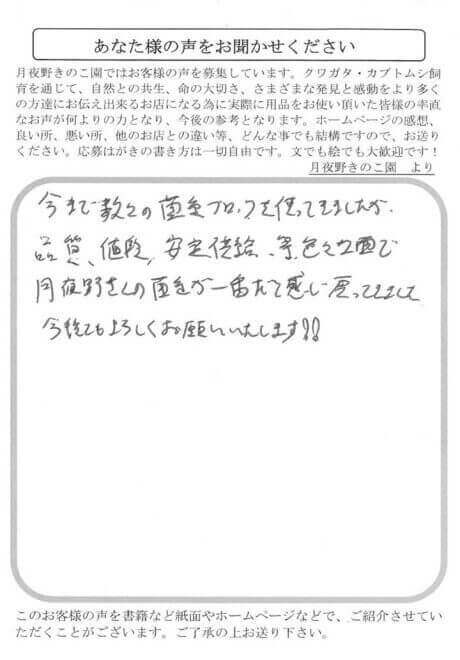 あなた様の声をお聞かせください
月夜野きのこ園ではお客様の声を募集しています。クワガタ・カブトムシ飼
育を通じて、自然との共生、命の大切さ、さまざまな発見と感動をより多く
の方達にお伝え出来るお店になる為に実際に用品をお使い頂いた皆様の率直
なお声が何よりの力となり、今後の参考となります。ホームページの感想、
良い所、悪い所、他のお店との違い等、どんな事でも結構ですので、お送り
ください。応募はがきの書き方は一切自由です。文でも絵でも大歓迎です！
月夜野きのこ園 より
今まで数々の菌糸ブロックを使ってきましたが、
品質、値段、安定供給、等色々な面で
月夜野さんの菌糸が一番だと感じ
今後ともよろしくお願いいたします!!
このお客様の声を書籍など紙面やホームページなどで、ご紹介させてい
ただくことがございます。ご了承の上お送り下さい。